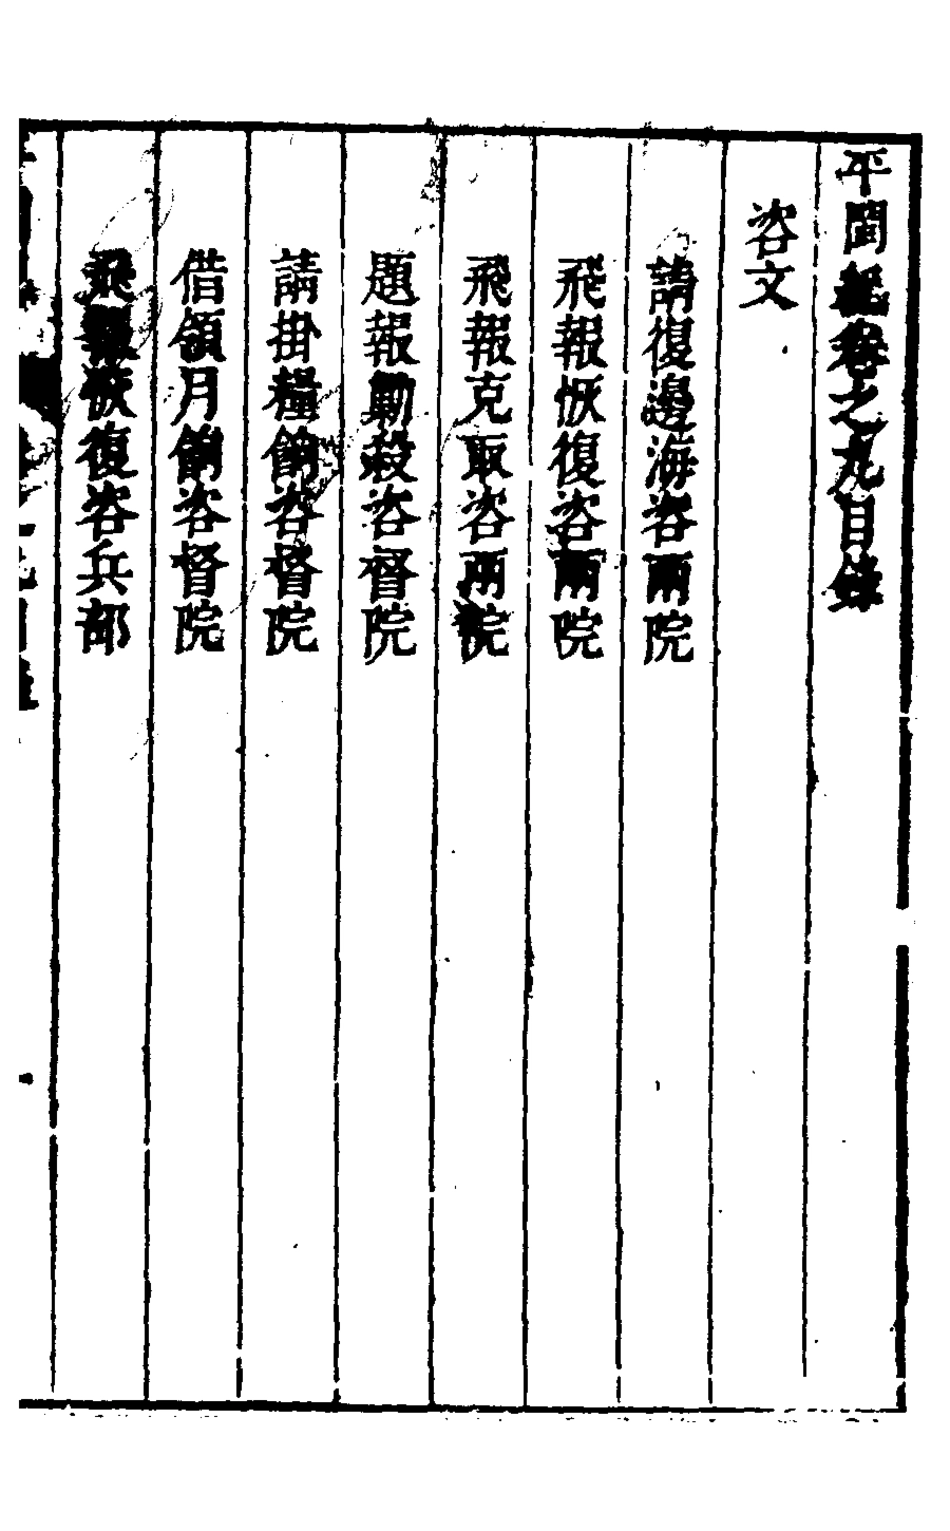 平閩紀卷之九目錄
咨文
請復邊海咨兩院
飛報恢復咨兩院
飛報克取咨兩院
題報勦殺咨督院
請掛糧餉咨督院
借領月餉咨督院
飛報恢復咨兵部